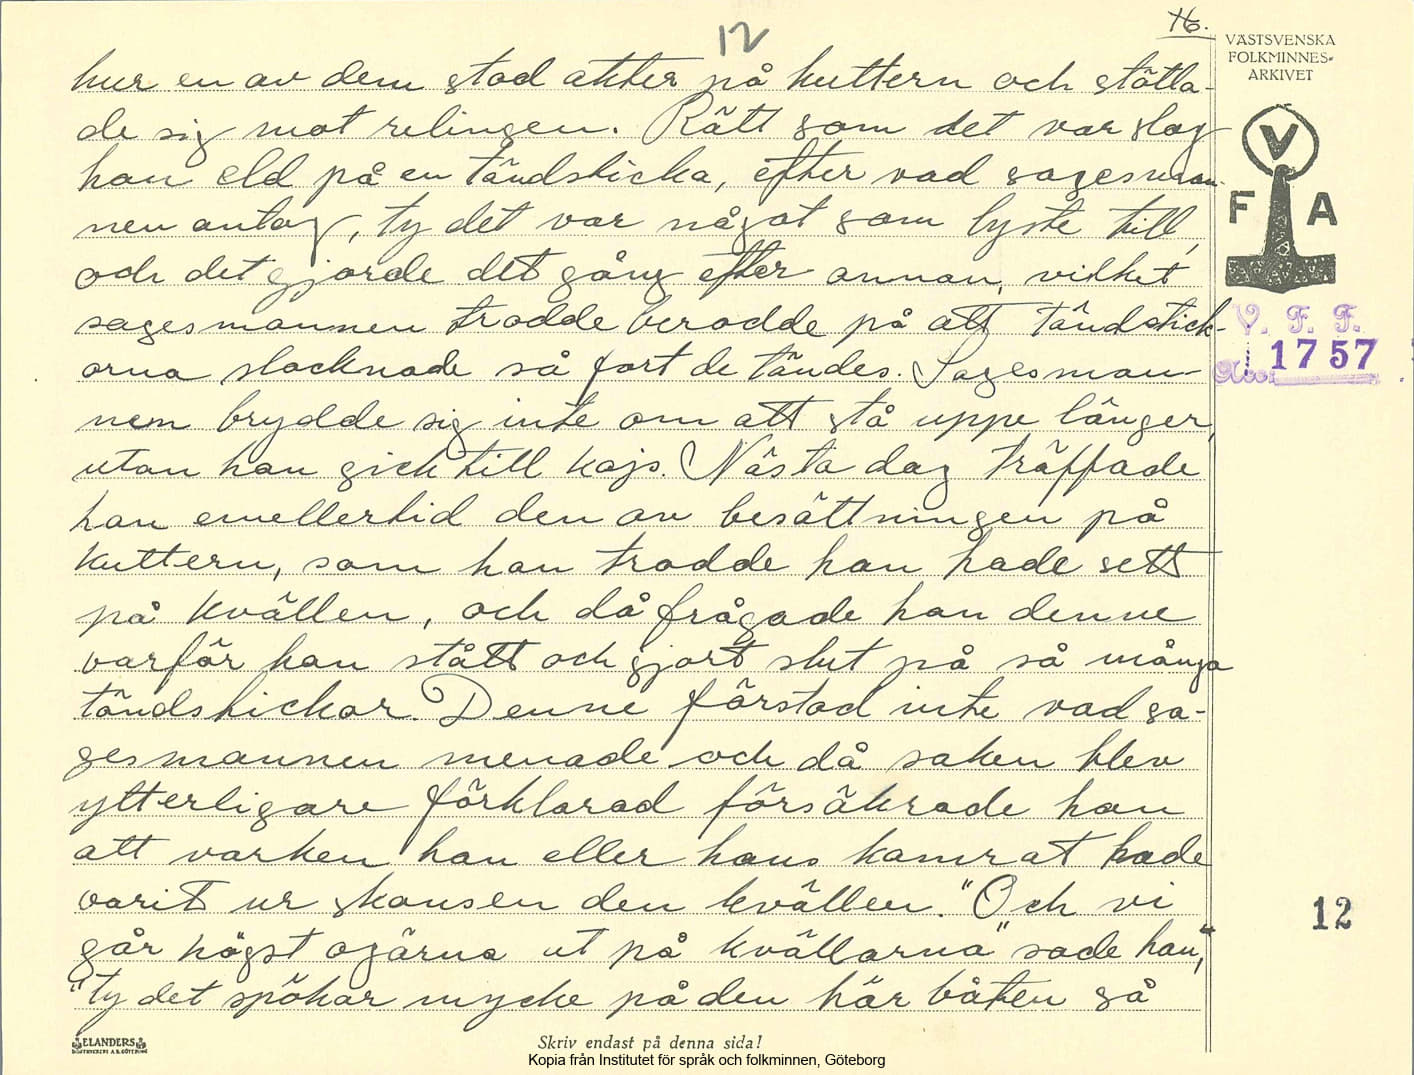 12
16.
VÄSTSVENSKA
FOLKMINNES-
ARKIVET
V
F A
V. F. F.
1757
hur en av dem stod akter på kuttern och stötta-
de sig mot relingen. Rätt som det var slog
han eld på en tändsticka, efter vad sagesman-
nen antog, ty det var något som lyste till,
och det gjorde det gång efter annan, vilket
sagesmannen trodde berodde på att tändstick-
orna slocknade så fort de tändes. Sagesman-
nen brydde sig inte om att stå uppe länger,
utan han gick till kojs. Nästa dag träffade
han emellertid den av besättningen på
kuttern, som han trodde han hade sett
på kvällen, och då frågade han denne
varför han stått och gjort slut på så många
tändstickor. Denne förstod inte vad sa-
gesmannen menade och då saken blev
ytterligare förklarad försäkrade han
att varken han eller hans kamrat hade
varit ur skansen den kvällen. "Och vi
går högst ogärna ut på kvällarna" sade han,
"ty det spökar mycke på den här båten så
12
ELANDERS
BOKTRYCKERI A.B. GÖTEBORG
Skriv endast på denna sida!
Kopia från Institutet för språk och folkminnen, Göteborg